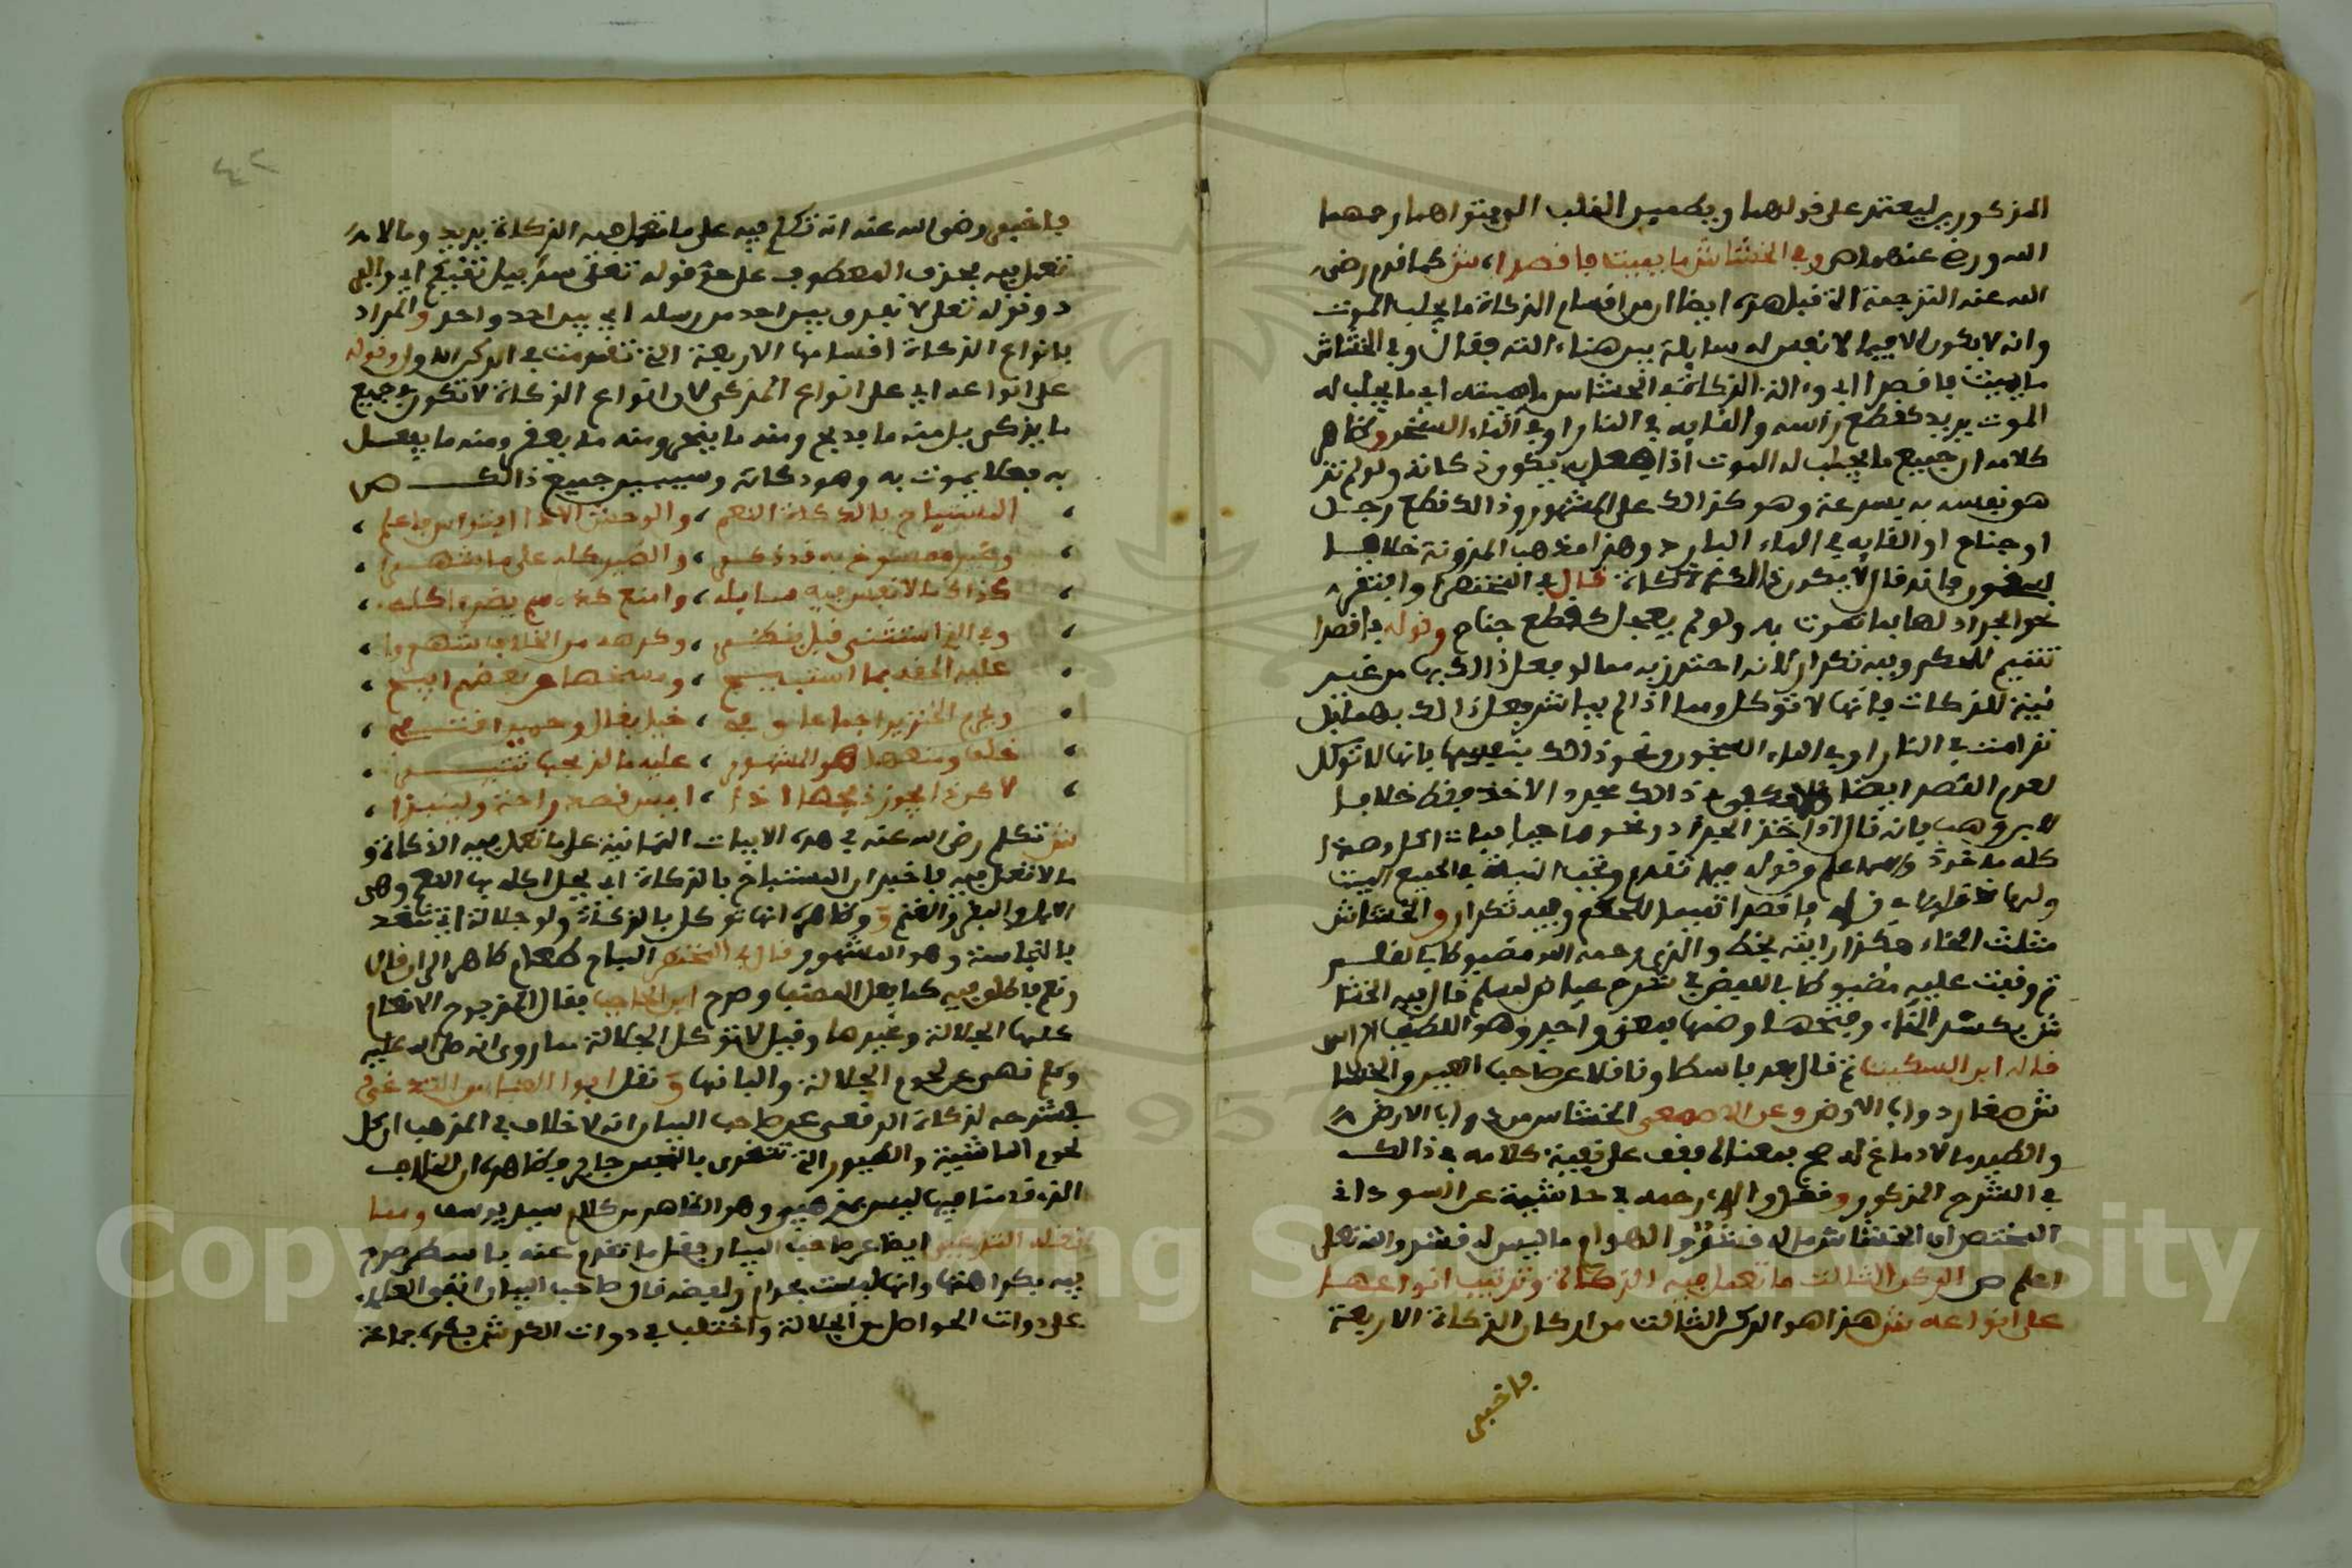 المذكورين ليعتمد على قولهما ويطمين القلب الى فتواهما رحمهما
الله ورضي عنهما ص وفي الخشاش ما يميت فاقصدا، ش كما قدم رضي
الله عنه الترجمة التي قبل هذه ايضا ان من اقسام الذكاة ما يعجل الموت
وانه لا يكون الا فيما لا نفس له سايلة بين هنا انه فقال وفي الخشاش
ما يميت فاقصدا اي و الذكاة في الخشاش ما يميته اي ما يعجل له
الموت يريد كقطع راسه والقايه في النار او في الماء السخن وظاهر
كلامه ان جميع ما يعجل له الموت اذا فعل به يكون ذكاته ولو لم تز
هو نفسه به بسرعة وهو كذالك على المشهور وذالك كقطع رجل
او جناح او القايه في الماء البارد وهذا مذهب المدونة خلافا
لسحنون فانه قال لا يكون ذالك ذكاة قال في المختصر وافتقر
نحو الجراد لها بما يموت به ولو لم يعجل كقطع جناح وقوله فاقصدا
تتميم للحكم وفيه تكرار لانه احترز به مما لو فعل ذالك بها من غير
نية للذكات فانها لا توكل ومما اذا لم يباشر فعل ذالك بها بل
ترامت في النار او في الماء السخون ونحو ذالك بنفسها فانها لا توكل
لعدم القصد ايضا ذالك مجرد الاخذ فقط خلافا
لابن وهب فانه قال اذا اخذ الجراد ونحوها حيا فمات اكل وهذا
كله ماخوذ والله اعلم وقوله فيما تقدم وتجب النية في الجميع
فاقصدا تتميما للحكم وفيه تكرار والخشاش
مثلث الخاء هكذا رايته بخط والدي رحمه الله مضبوطا بالقلم
ثم وقفت عليه مضبوطا باللفظ في شرح عياض لمسلم قال فيه الخشا
ش بكسر الخاء وفتحها وضمها بمعنى واحد وهو اللطيف الراس
قاله ابن السكيت ثم قال بعد باسطا وناقلا عن صاحب العين والخشا
ش صغار دواب الارض وعن الاصمعي الخشاش من دواب الارض
والطير ما لا دماغ له صح بمعناه فقف على بقية كلامه في ذالك
في الشرح المذكور ونقل والدي رحمه في حاشية عن السوداني
المختصر ان الخشاش ما له قشر والهوام ما ليس له قشر والله تعلى
اعلم ص الركن الثالث ما تعمل فيه الذكاة وترتيب انواعها
على انواعه ش هذا هو الركن الثالث من اركان الذكاة الاربعة
فاخبر
فاخبر رضي الله عنه انه تكلم فيه على ما تعمل فيه الذكاة يريد وما لا
تعمل فيه بحذف المعطوف على حد قوله تعلى سرابيل تقيكم اي والبر
د وقوله تعلى لا نفرق بين احد من رسله اي بين احد واحد والمراد
بانواع الذكاة اقسامها الاربعة التي تقدمت في الركن الاول وقوله
على انواعه اي على انواع المذكى لان انواع الذكاة لا تكون في جميع
ما يذكى بل منه ما يذبح ومنه ما ينحر ومنه ما يعقر ومنه ما يفعل
به فعلا يموت به وهو ذكاته وسيبين جميع ذالك ص
المستباح بالذكاة النعم، والوحش الا ذا افتراس فاعلم،
وغير ممسوخ به قد ذكي، والطير كله على ما شهرا،
كذاك ما لا نفس فيه سايله، وامنع كذا، من يضره اكله،
وفي الذي استثني قيل يذكى، وكرهه من الخلاف شهروا،
عليه الحقه بما استبيح، ومنعها عن بعضهم ابيح،
وحرم الخنزير اجماعا وفي، خيل بغال وحمير اقتفي،
خلف ومنعها هو المشهور، عليه ما لذبحها تثير،
لا كن ذا يجوز ذبحها اذا، ايس قصد راحة ولينبذا،
ش تكلم رضي الله عنه في هذه الابيات الثمانية على ما تعمل فيه الذكاة و
ما لا تعمل فيه فاخبر ان المستباح بالذكاة اي يحل اكله بها النعم وهي
الابل والبقر والغنم وظاهره انها توكل بالذكاة ولو جلالة اي تتغذ
بالنجاسة وهو المشهور قال في المختصر المباح طعام طاهر الى ان قال
ونعم فاطلق فيه كما فعل المصنف وصرح ابن الحاجب فقال الانعام
منها الجلالة وغيرها وقيل لا توكل الجلالة مما روي انه صلى الله عليه
وسلم نهى عن لحوم الجلالة والبانها ونقل ابو العباس
في شرحه لذكاة الرقعي عن صاحب البيان انه لا خلاف في المذهب ان اكل
لحوم الماشية والطيور التي تتغذى بالنجس جايز وظاهره ان الخلاف
الذي قدمنا فيها ليس بمذهبي وهو الظاهر من كلام سيد يوسف ومما
نقله ايضا عن صاحب البيان فقل ما تقدم عنه باسطر صرح
فيه بكراهتها وانها ليست بحرام ولفظه قال صاحب البيان اتفق العلماء
على ذوات الحواصل من الجلالة واختلف في ذوات الكرش فكره جماعة